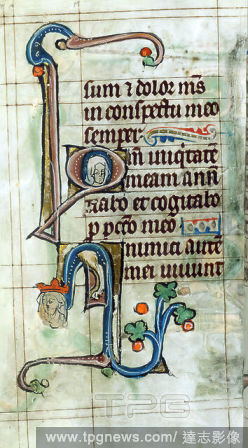 sum ⁊ dolor ms̄
in conspectu meo
semper
Qm̄ iniqtatē
meam ann
tiabo et cogitabo
p pctō meo
Inimici autē
mei uiuunt
TPG
www.tpgnews.com / 達志影像